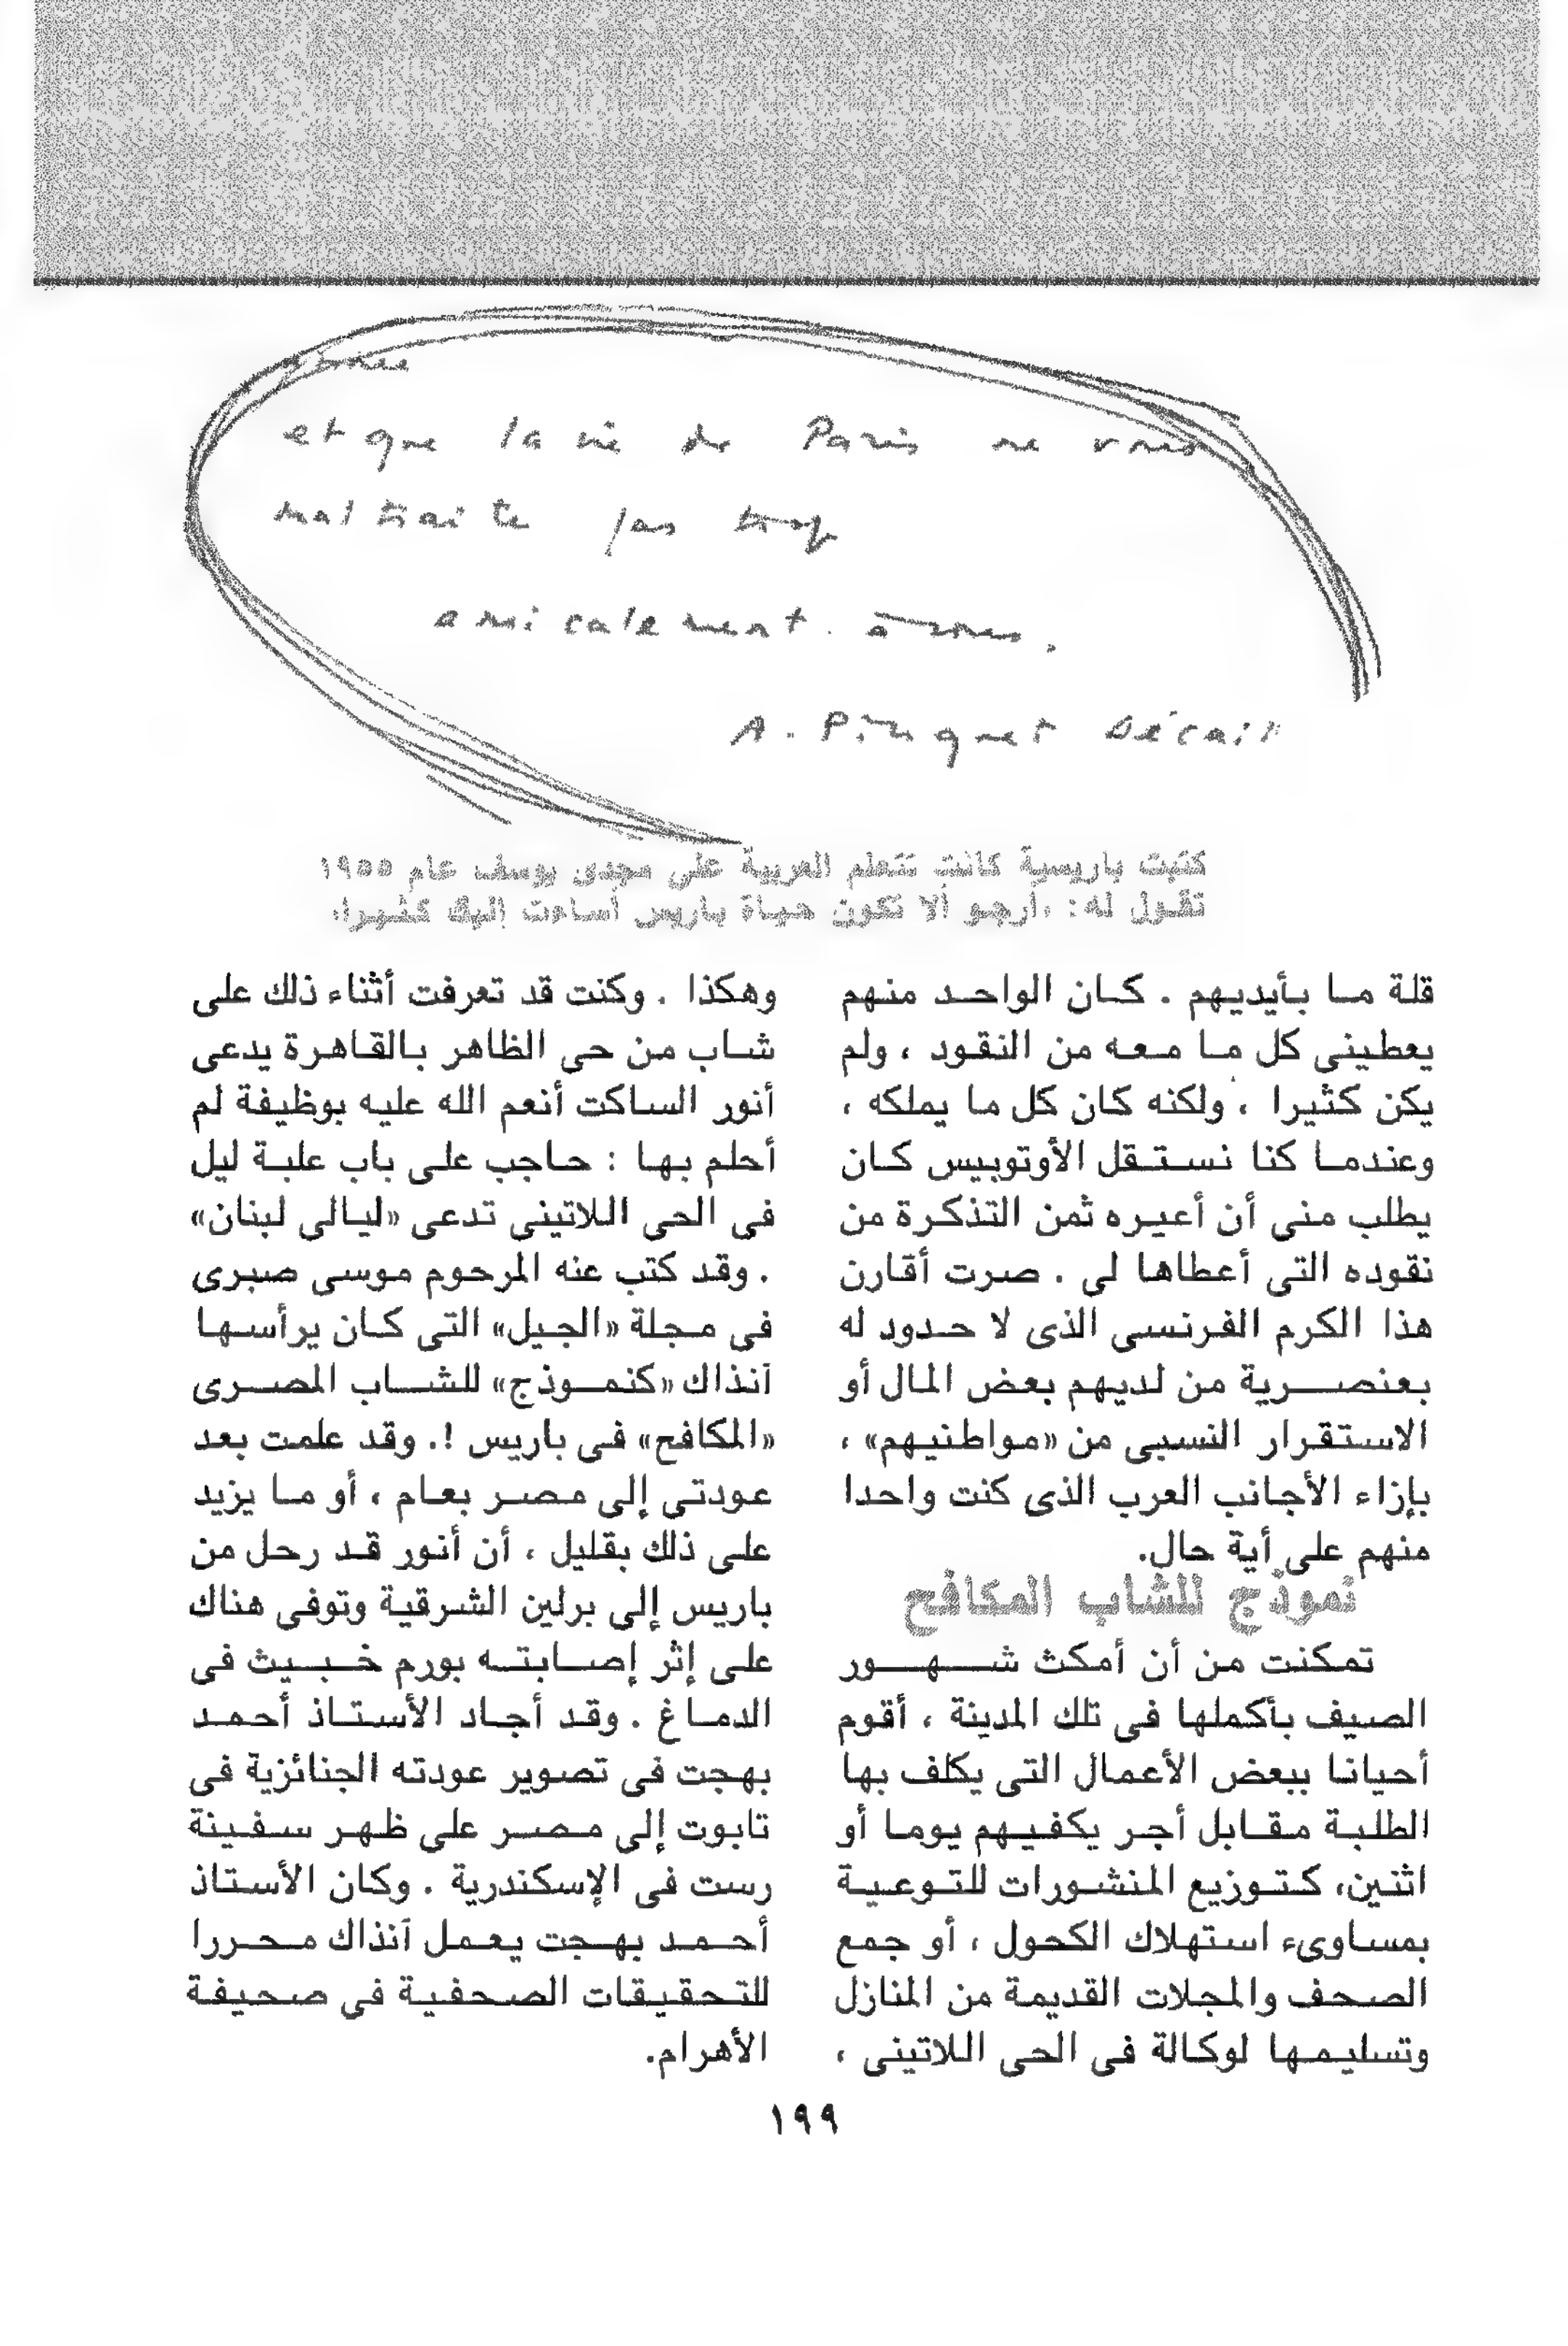 et que la vie de Paris ne vous
maltraite pas trop
amicalement à vous.
A. Pinguet Décaill
كتبت باريسية كانت تتعلم العربية على مجدى يوسف عام ١٩٥٥
تقول له: «أرجو ألا تكون حياة باريس أساءت إليك كثيرا»
قلة ما بأيديهم . كان الواحد منهم
يعطينى كل ما معه من النقود ، ولم
يكن كثيرا ، ولكنه كان كل ما يملكه ،
وعندما كنا نستقل الأوتوبيس كان
يطلب منى أن أعيره ثمن التذكرة من
نقوده التى أعطاها لى . صرت أقارن
هذا الكرم الفرنسى الذى لا حدود له
بعنصرية من لديهم بعض المال أو
الاستقرار النسبى من «مواطنيهم» ،
بإزاء الأجانب العرب الذى كنت واحدا
منهم على أية حال.
نموذج للشاب المكافح
تمكنت من أن أمكث شهور
الصيف بأكملها فى تلك المدينة ، أقوم
أحيانا ببعض الأعمال التى يكلف بها
الطلبة مقابل أجر يكفيهم يوما أو
اثنين، كتوزيع المنشورات للتوعية
بمساوىء استهلاك الكحول ، أو جمع
الصحف والمجلات القديمة من المنازل
وتسليمها لوكالة فى الحى اللاتينى ،
وهكذا . وكنت قد تعرفت أثناء ذلك على
شاب من حى الظاهر بالقاهرة يدعى
أنور الساكت أنعم الله عليه بوظيفة لم
أحلم بها : حاجب على باب علبة ليل
فى الحى اللاتينى تدعى «ليالى لبنان»
. وقد كتب عنه المرحوم موسى صبرى
فى مجلة «الجيل» التى كان يرأسها
آنذاك «كنموذج» للشاب المصرى
«المكافح» فى باريس !. وقد علمت بعد
عودتى إلى مصر بعام ، أو ما يزيد
على ذلك بقليل ، أن أنور قد رحل من
باريس إلى برلين الشرقية وتوفى هناك
على إثر إصابته بورم خبيث فى
الدماغ . وقد أجاد الأستاذ أحمد
بهجت فى تصوير عودته الجنائزية فى
تابوت إلى مصر على ظهر سفينة
رست فى الإسكندرية . وكان الأستاذ
أحمد بهجت يعمل آنذاك محررا
للتحقيقات الصحفية فى صحيفة
الأهرام.
١٩٩